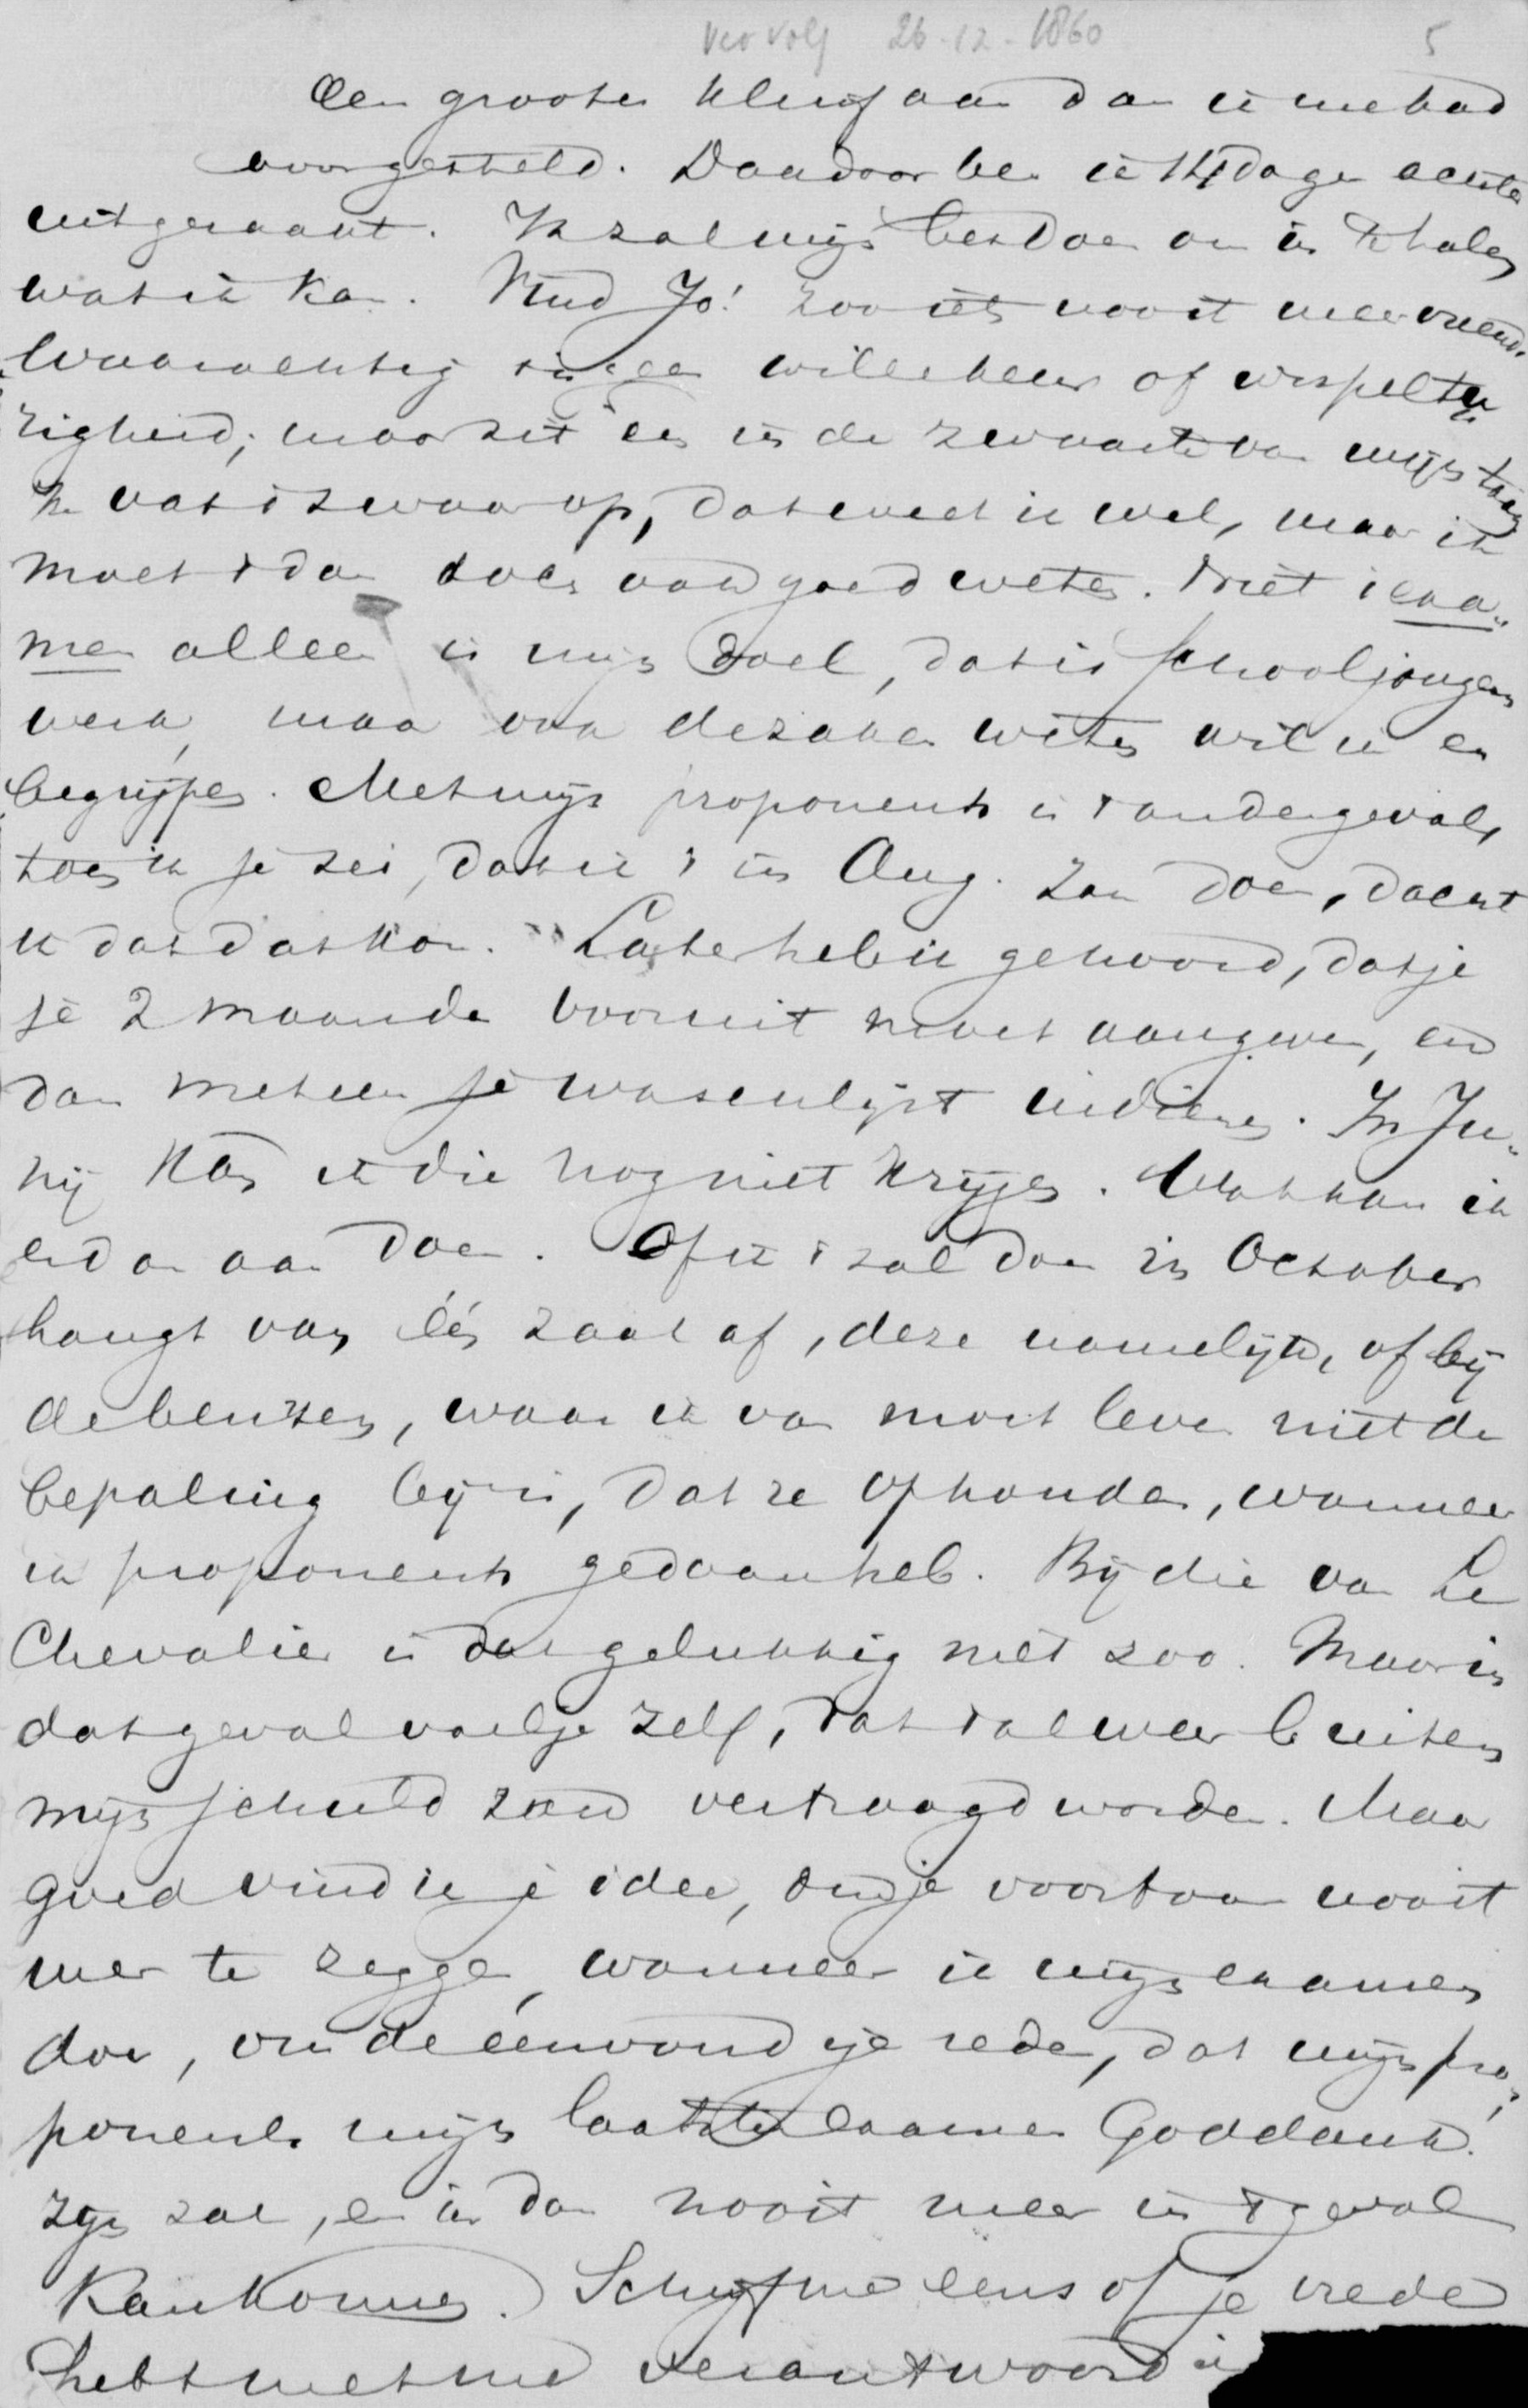 vervolg 26-12-1860 5
een grooter kluif aan dan ik me had
voorgesteld. Daardoor ben ik 14 dagen achter
uitgeraakt. Ik zal mijn best doen om in te halen
wat ik kan. Vind Jo! zoo iets nooit meer vreemd.
Waarachtig 't is geen willekeur of wispeltu„
righeid; maar zit em in de zwaarte van mijn taak
Ik vat 't zwaar op, dat weet ik wel, maar ik
moet 't dan toch ook goed weten. Niet exa„
men alleen is mijn doel, dat is schooljongens
werk, maar ook de zaken weten wil ik en
begrijpen. Met mijn proponents is 't ander geval,
toen ik je zei, dat ik 't in Aug. zou doen, dacht
ik dat dat kon. Later heb ik gehoord, dat je
je 2 maanden vooruit moet aangeven, en
dan meteen je waschlijst indienen. In Ju„
nij kan ik die nog niet krijgen. Wat kan ik
er dan aan doen. Of ik 't zal doen in October
hangt van één zaak af, deze namelijk, of bij
de beurzen, waar ik van moet leven niet de
bepaling bij is, dat ze ophouden, wanneer
ik proponents gedaan heb. Bij die van Le
Chevalier is dat gelukkig niet zoo. Maar in
dat geval voel je zelf, dat 't al weer buiten
mijn schuld zou vertraagd worden. Maar
goed vind ik je idee, om je voortaan nooit
meer te zeggen, wanneer ik mijn examen
doe, om de éenvoudige reden, dat mijn pro„
ponents mijn laatste examen Goddank!
zijn zal, en ik dan nooit meer in 't geval
kan komen. Schrijf me eens of je vrede
hebt met me verantwoording